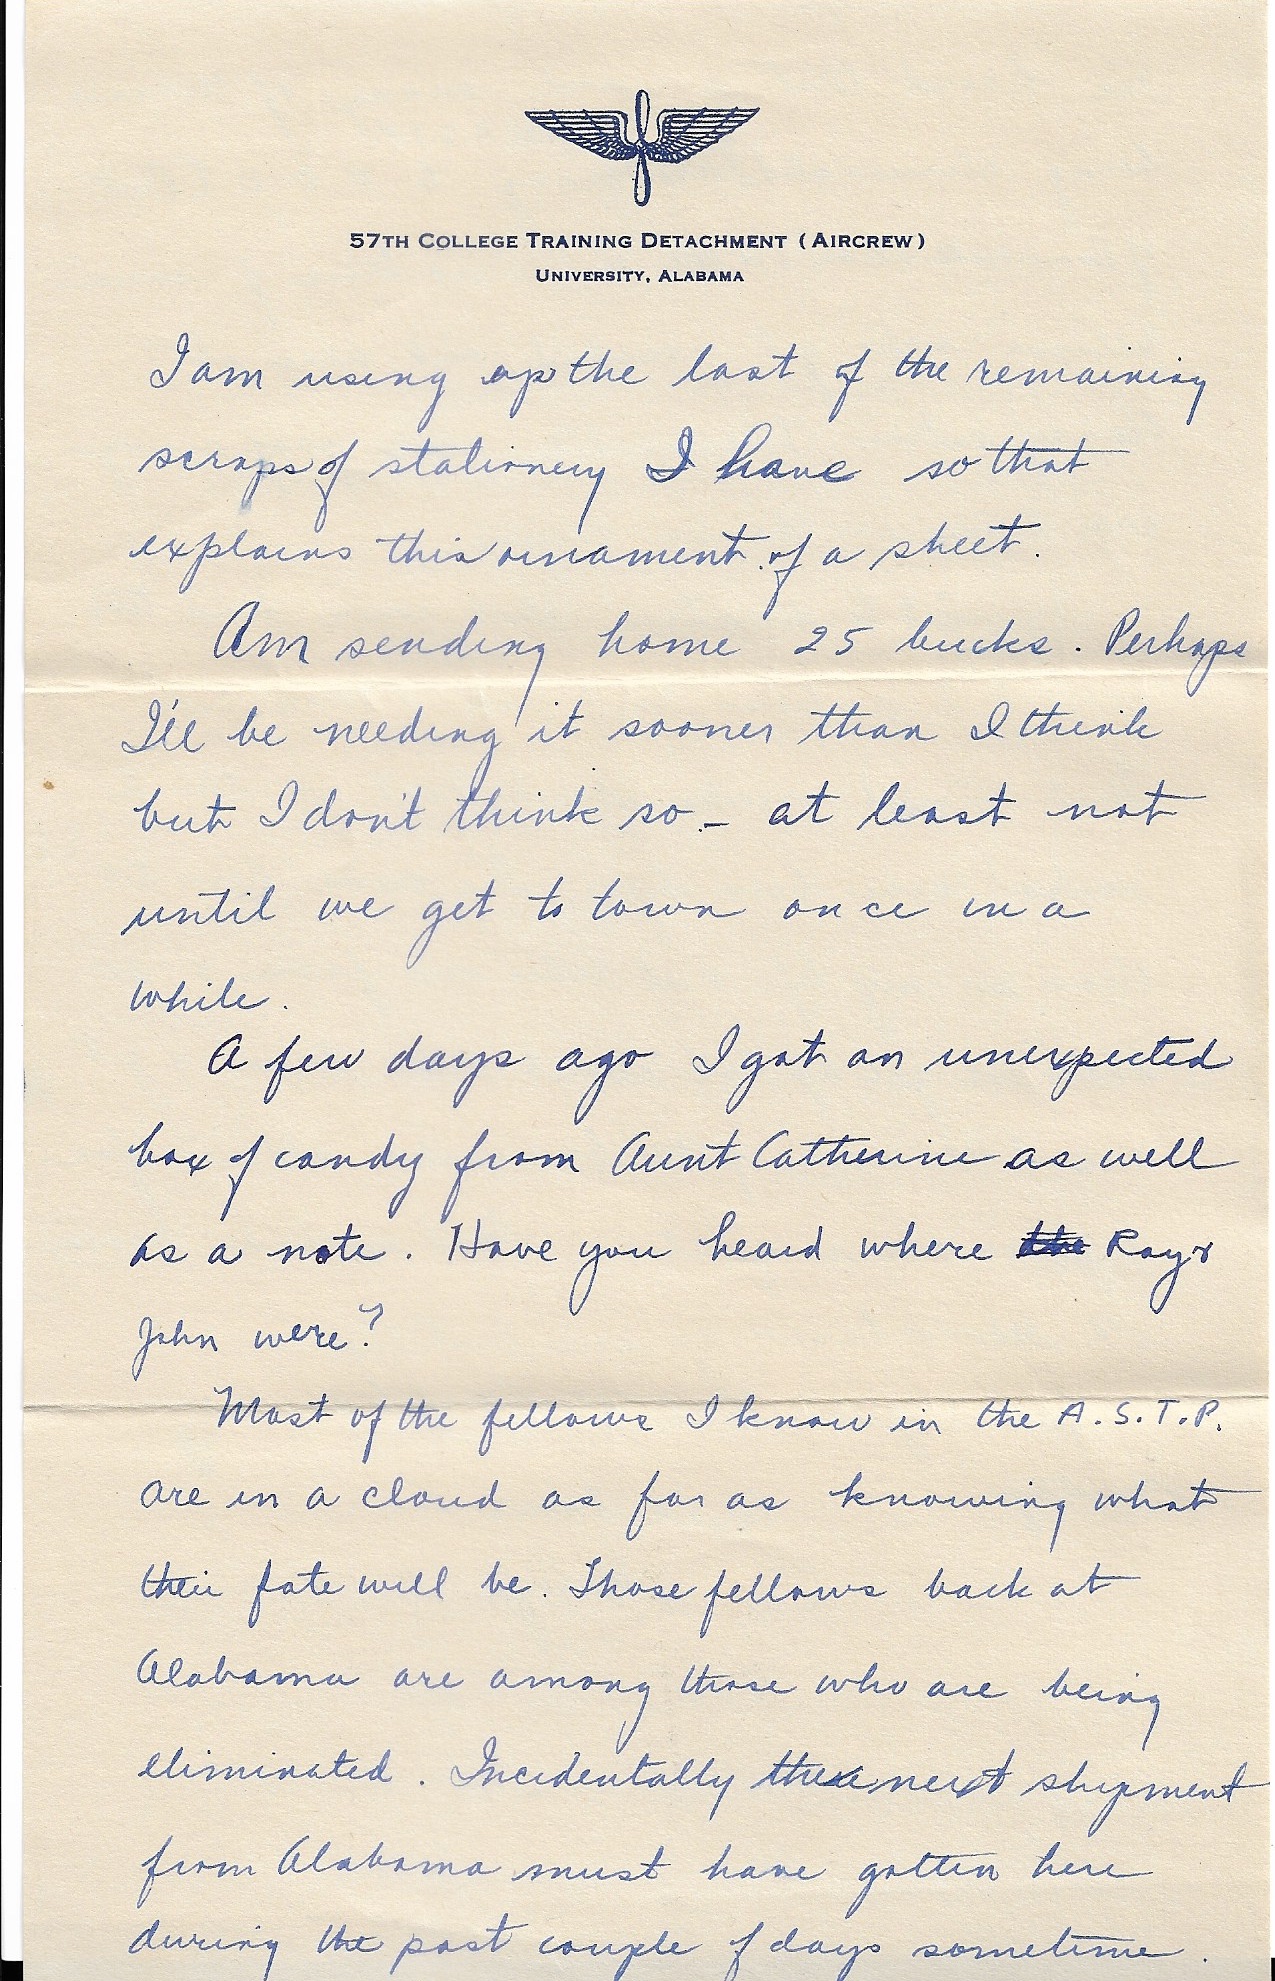 57TH COLLEGE TRAINING DETACHMENT (AIRCREW)
UNIVERSITY, ALABAMA
I am using up the last of the remaining
scraps of stationery I have so that
explains this ornament of a sheet.
Am sending home 25 bucks. Perhaps
I'll be needing it sooner than I think
but I don't think so - at least not
until we get to town once in a
while.
A few days ago I got an unexpected
box of candy from Aunt Catherine as well
as a note. Have you heard where the Ray &
John were?
Most of the fellows I know in the A.S.T.P.
are in a cloud as far as knowing what
their fate will be. Those fellows back at
Alabama are among those who are being
eliminated. Incidentally the next shipment
from Alabama must have gotten here
during the past couple of days sometime.